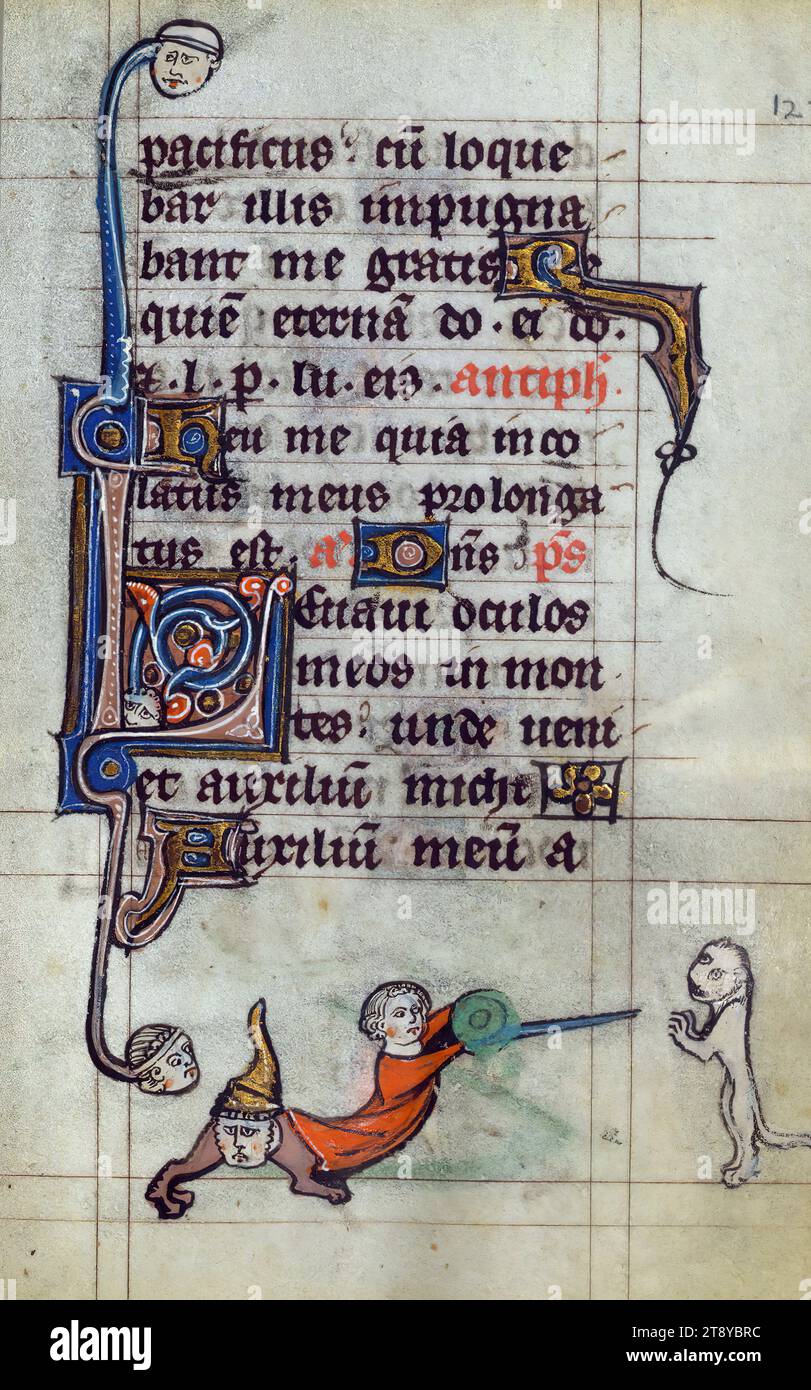 12
pacificus. cū loque
bar illis impugna
bant me gratis Re
quiē eternā do. ei do.
⁊. l. p. lu. eis. antiph.
Heu me quia inco
latus meus prolonga
tus est. Dn̄s ps
Leuaui oculos
meos in mon
tes. unde ueni
et auxiliū michi
Auxiliū meū a
alamy
Image ID: 2T8YBRC
www.alamy.com